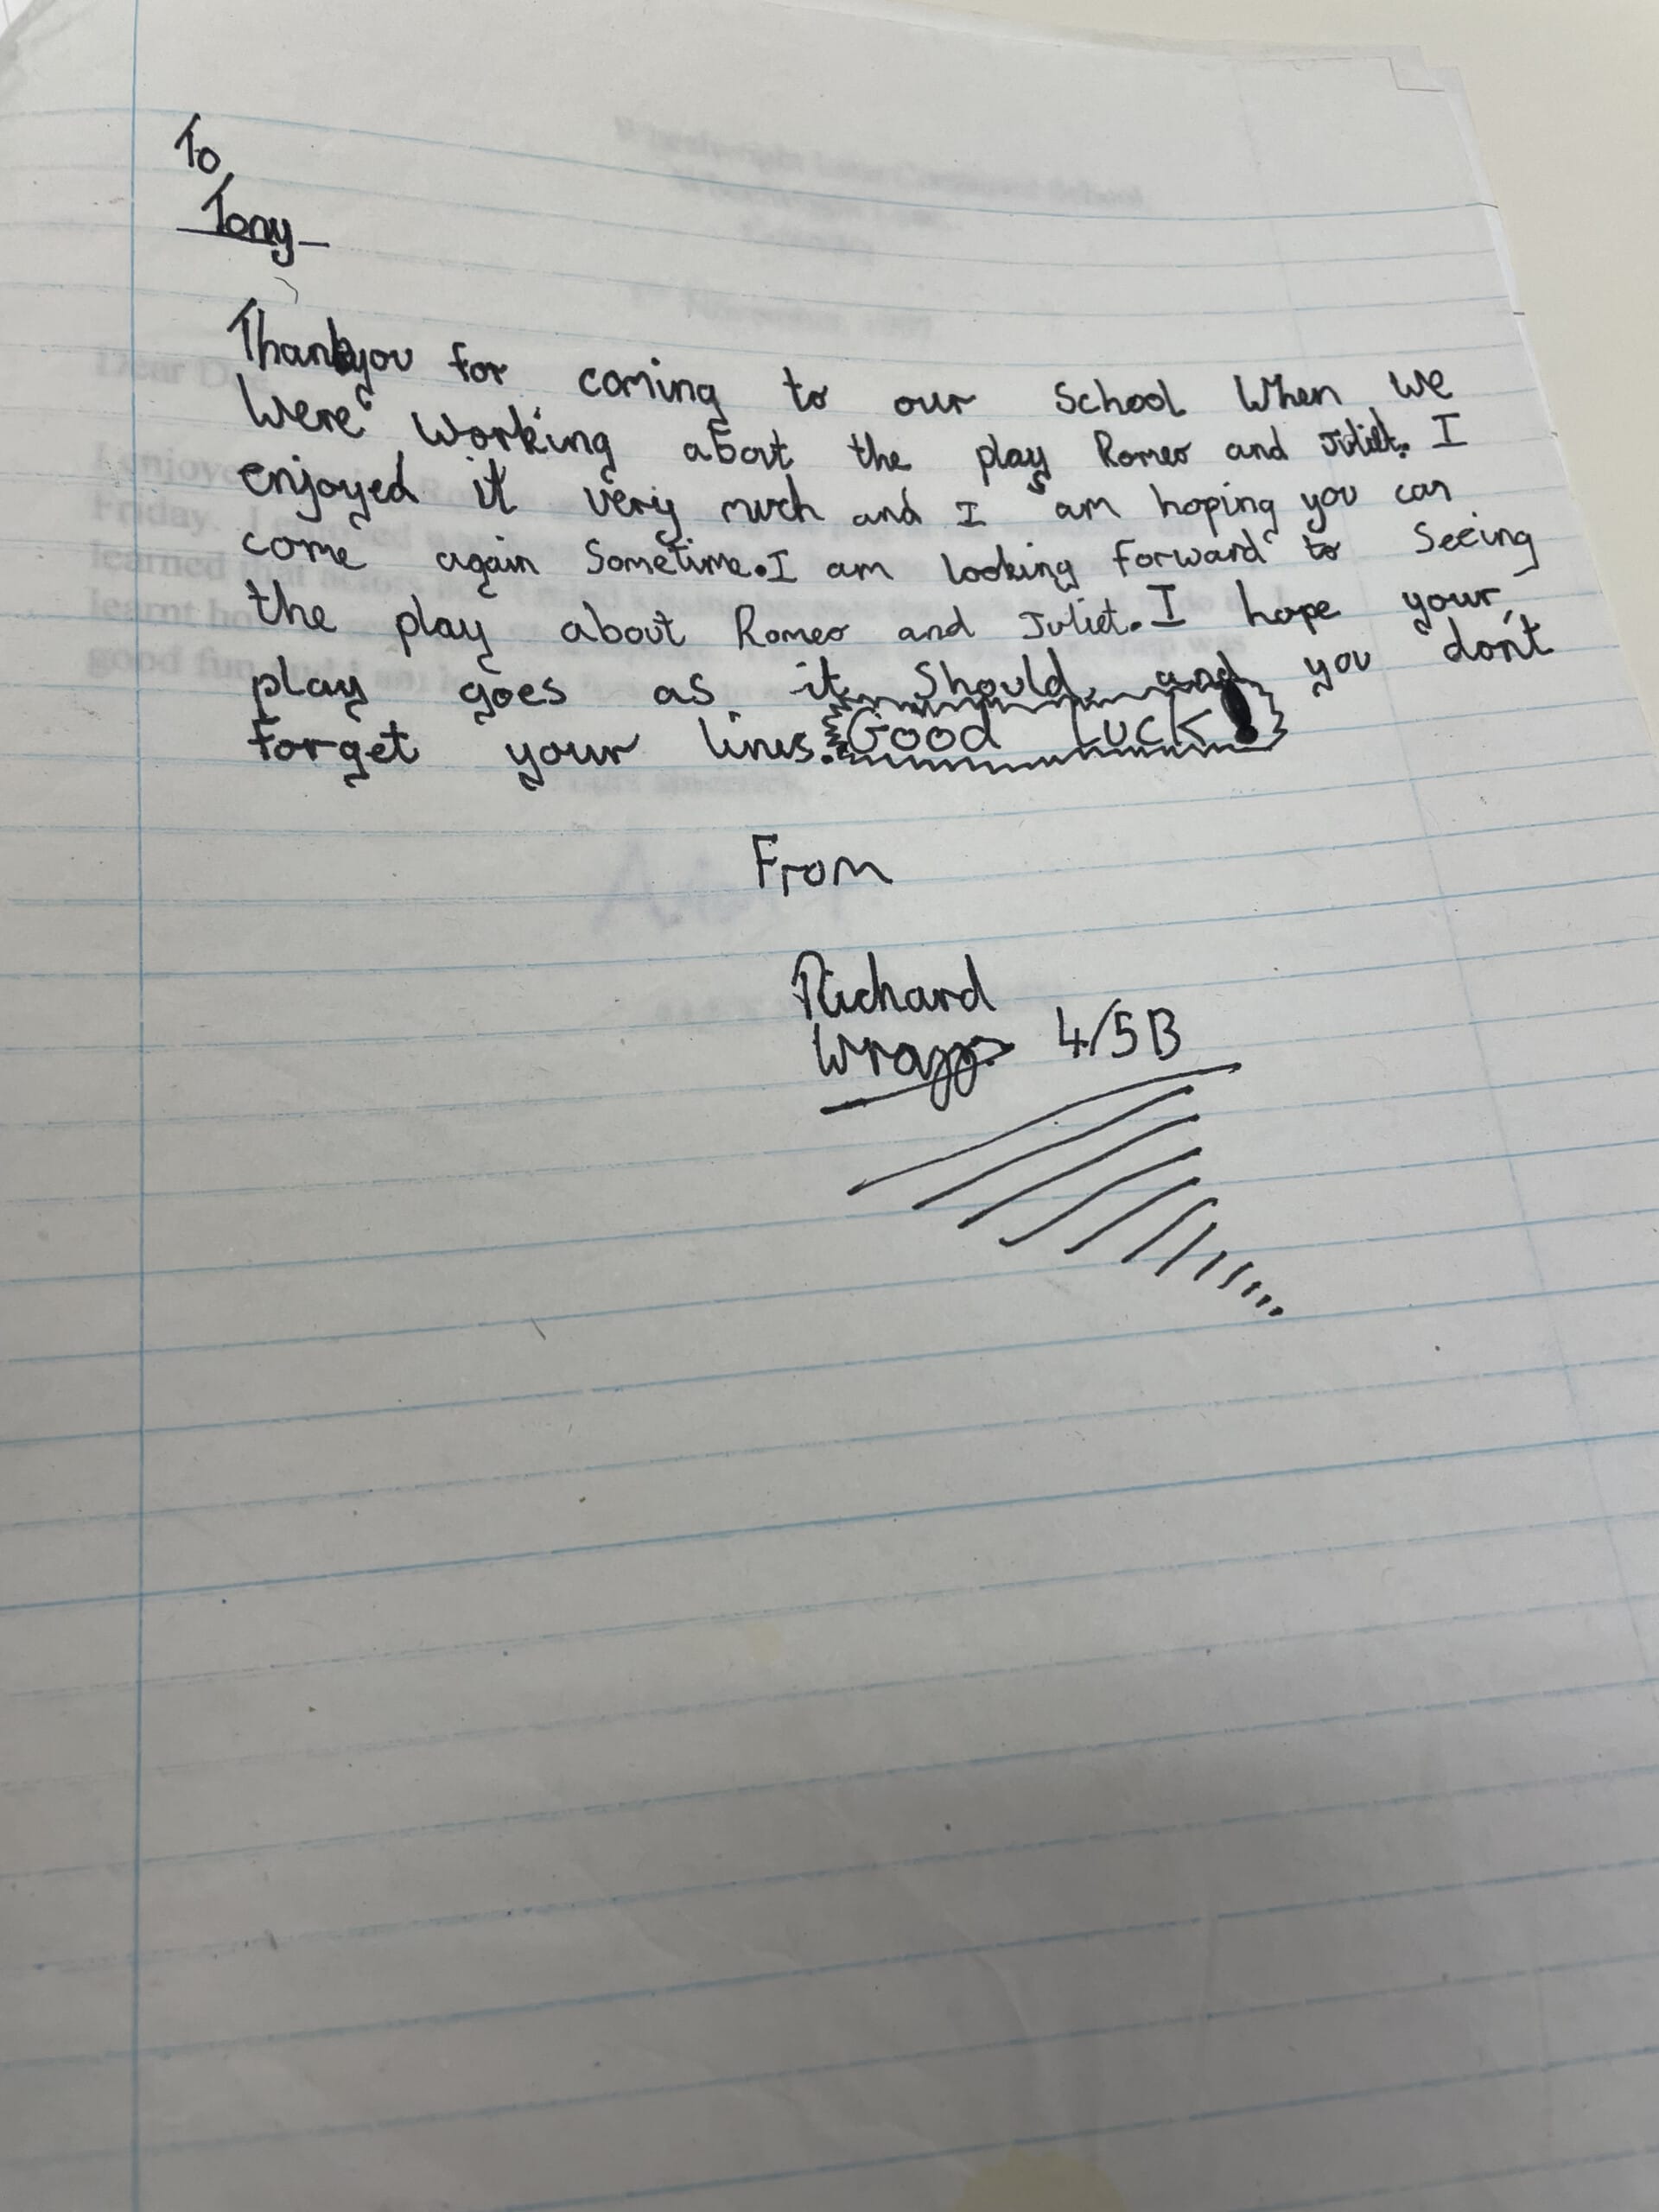 To
Tony
Thankyou for coming to our School When We
Were Working about the play Romeo and Juliet. I
enjoyed it very much and I am hoping you can
come again Sometime. I am looking forward to Seeing
the play about Romeo and Juliet. I hope your
play goes as it Should and you don't
forget your lines. Good Luck!
From
Richard
Wragg 4/5B
Dear